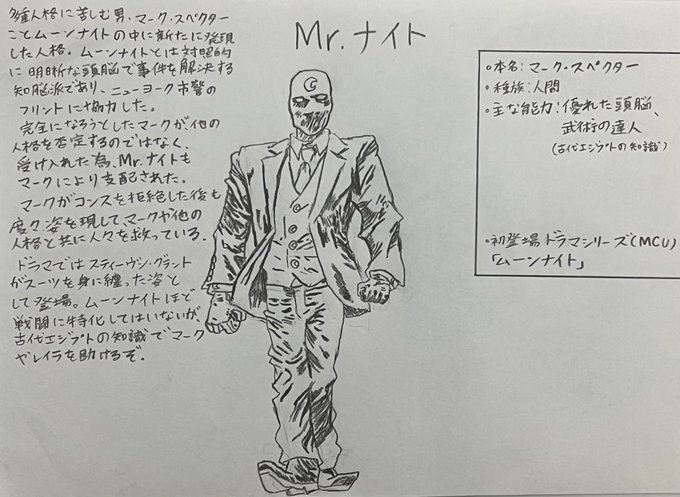 Mr.ナイト
多重人格に苦しむ男、マーク・スペクター
ことムーンナイトの中に新たに発現
した人格。ムーンナイトとは対照的
に明晰な頭脳で事件を解決する
知脳派であり、ニューヨーク市警の
フリントに協力した。
完全になろうとしたマークが他の
人格を否定するのではなく、
受け入れた為、Mr.ナイトも
マークにより支配された。
マークがコンスを拒絶した後も
度々姿を現してマークや他の
人格と共に人々を救っている。
ドラマではスティーヴン・グラント
がスーツを身に纏った姿と
して登場。ムーンナイトほど
戦闘に特化してはいないが
古代エジプトの知識でマーク
やレイラを助けるぞ。
・本名:マーク・スペクター
・種族:人間
・主な能力:優れた頭脳、
武術の達人
(古代エジプトの知識)
・初登場ドラマシリーズ(MCU)
「ムーンナイト」